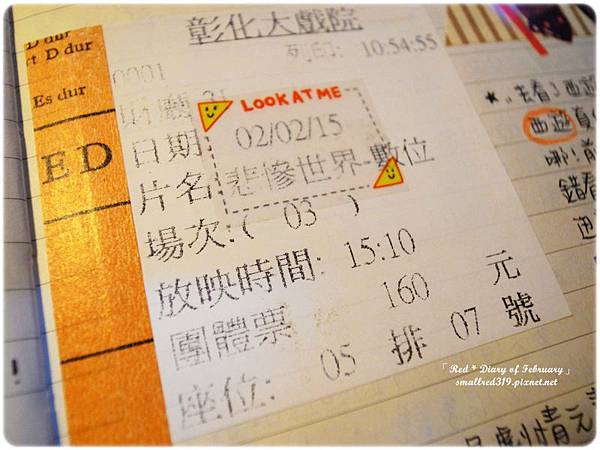 D dur
rt D dur
Es dur
E D
彰化大戲院
列印: 10:54:55
0001
LOOK AT ME
日期: 02/02/15
片名: 悲慘世界-數位
場次:( 03 )
放映時間: 15:10
團體票 160 元
座位: 05 排 07 號
★..去看了西遊
西遊
哪!前
錯看
「Red * Diary of February」
smallred319.pixnet.net